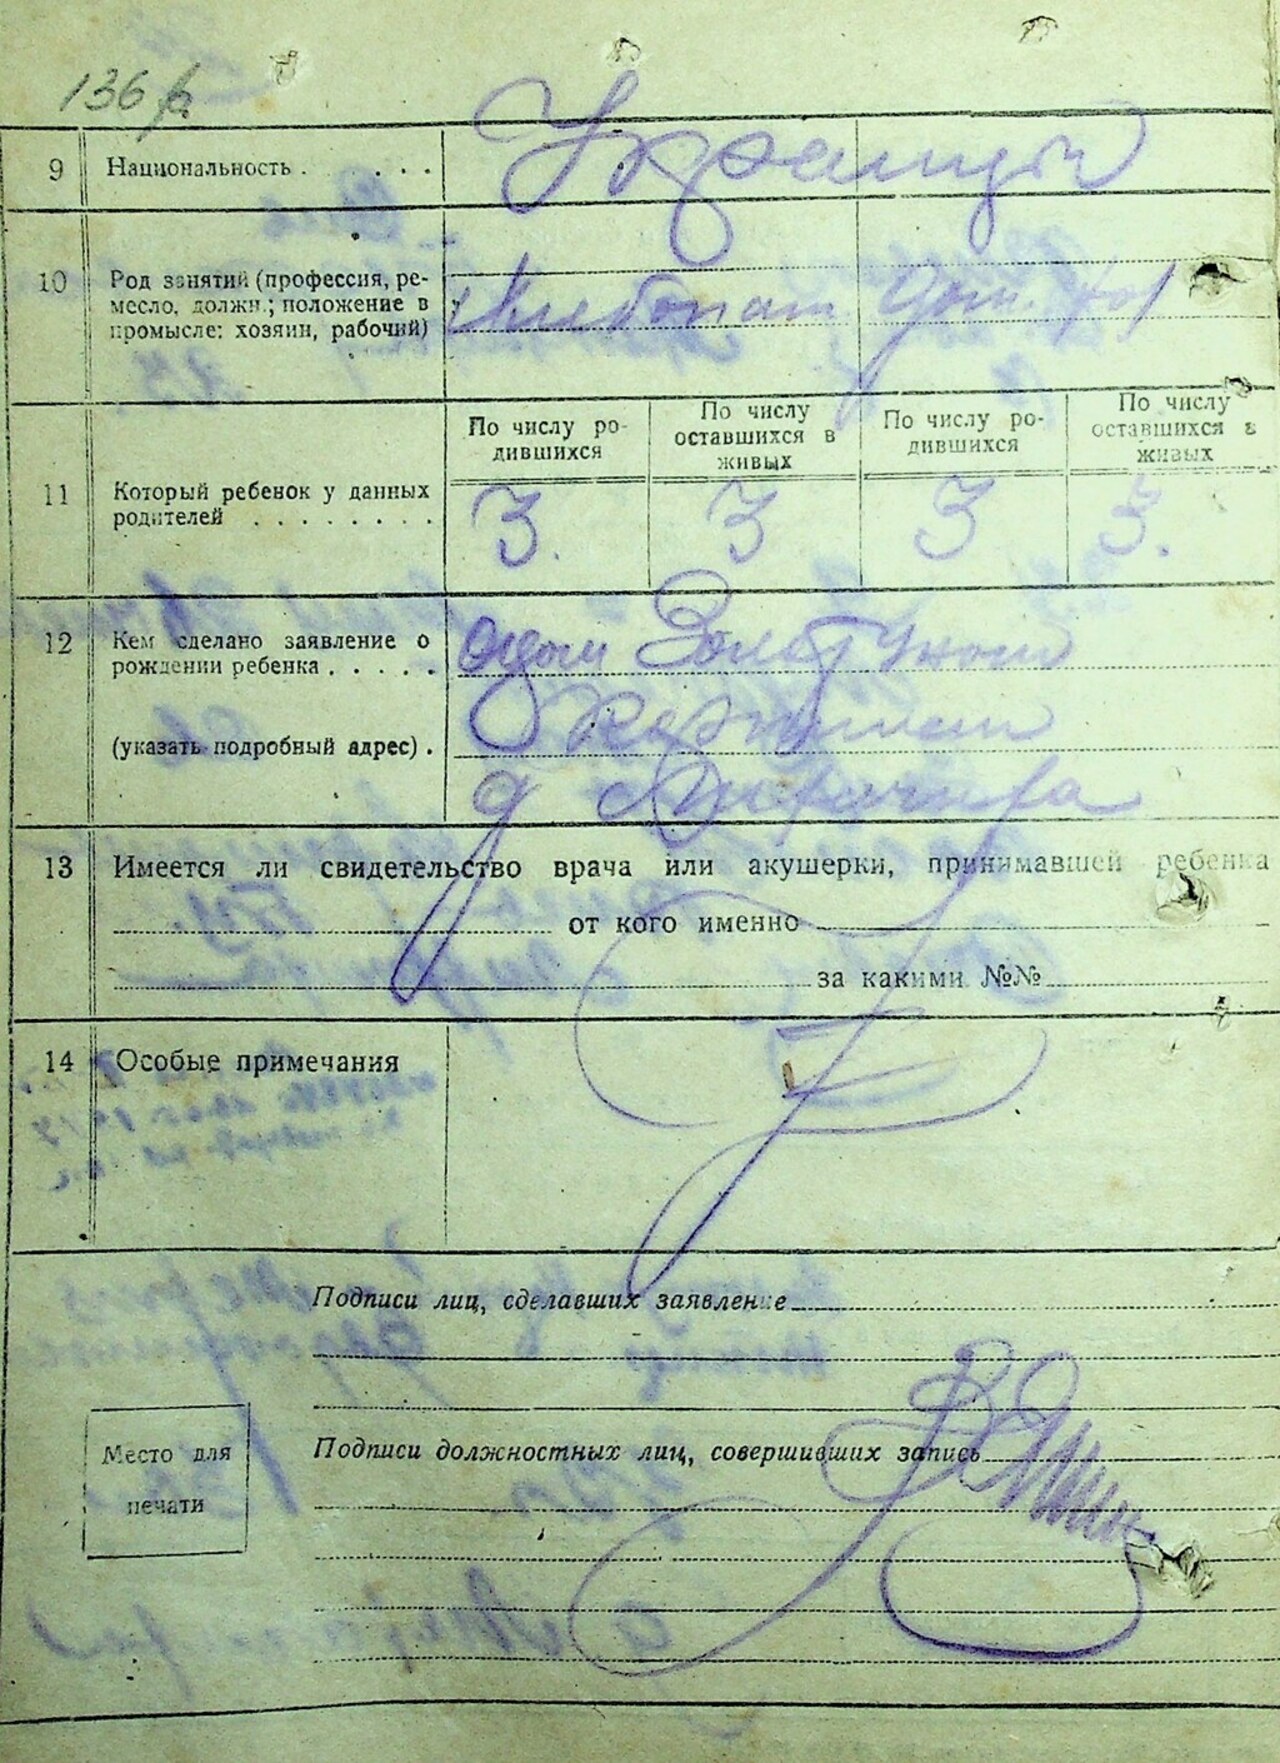 136
9 Национальность . . . .
Украинцы
10 Род занятий (профессия, ре-
месло, должн.; положение в
промысле: хозяин, рабочий)
Хлебопаш Дом. хоз
11 Который ребенок у данных
родителей . . . . . . . .
По числу ро-
дившихся
По числу
оставшихся в
живых
По числу ро-
дившихся
По числу
оставшихся в
живых
3. 3 3 3.
12 Кем сделано заявление о
рождении ребенка . . . . .
отцом
(указать подробный адрес) .
д
13 Имеется ли свидетельство врача или акушерки, принимавшей ребенка
от кого именно
за какими №№
14 Особые примечания
Подписи лиц, сделавших заявление
Подписи должностных лиц, совершивших запись
Место для
печати